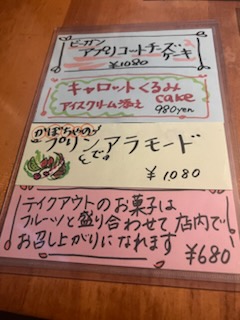 ビーガン
アプリコットチーズ
ケーキ
¥1080
キャロットくるみ
cake
アイスクリーム添え
980yen
かぼちゃの
プリンアラモード
¥1080
テイクアウトのお菓子は
フルーツと盛り合わせて店内で
お召し上がりになれます
¥680